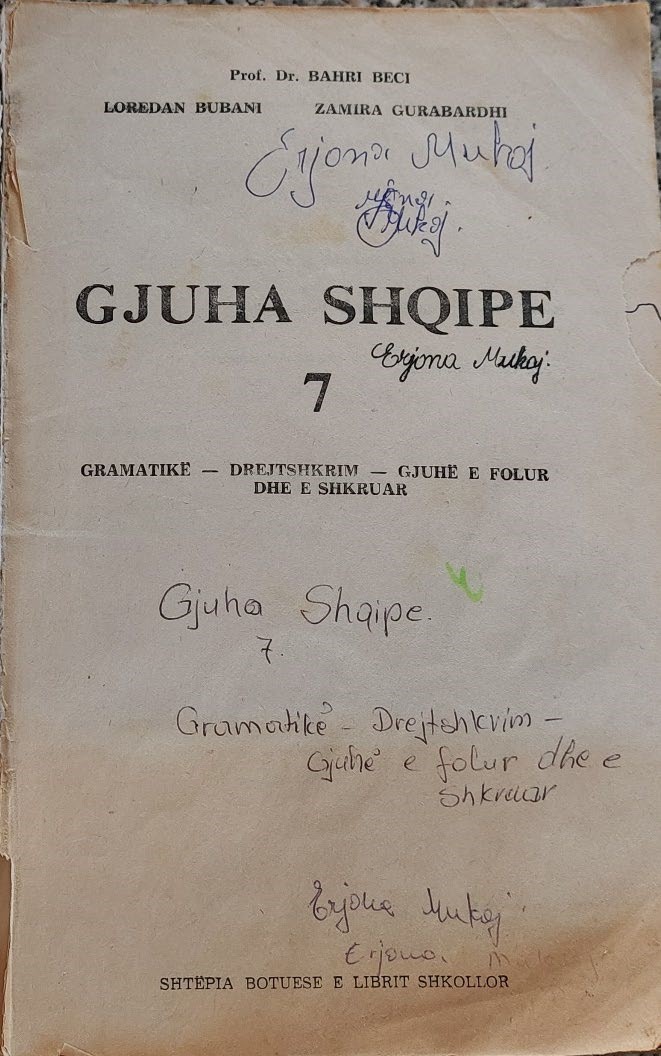 Prof. Dr. BAHRI BECI
LOREDAN BUBANI ZAMIRA GURABARDHI
Erjona Mukaj
Mukaj.
GJUHA SHQIPE
Erjona Mukaj.
7
GRAMATIKË — DREJTSHKRIM — GJUHË E FOLUR
DHE E SHKRUAR
Gjuha Shqipe.
7.
Gramatikë - Drejtshkrim -
Gjuhë e folur dhe e
Shkruar
Erjona Mukaj
Erjona Mukaj
SHTËPIA BOTUESE E LIBRIT SHKOLLOR